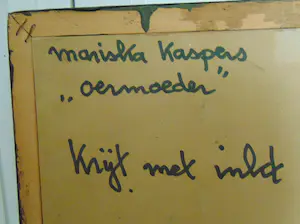 mariska Kaspers
„oermoeder”
Krijt met inkt